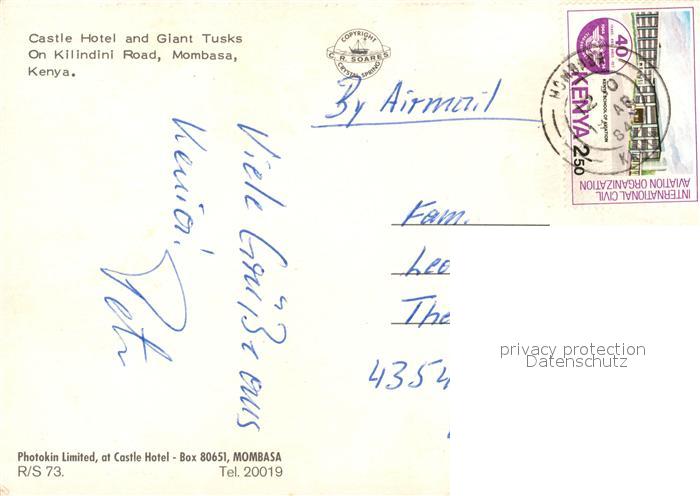 Castle Hotel and Giant Tusks
On Kilindini Road, Mombasa,
Kenya.
COPYRIGHT
C. R. SOARES
CRYSTAL SPRINGS
By Airmail
40
KENYA 2/50
INTERNATIONAL CIVIL
AVIATION ORGANIZATION
Viele Grüße aus
Kenia!
Peter
Fam.
Leo
The
4354
privacy protection
Datenschutz
Photokin Limited, at Castle Hotel - Box 80651, MOMBASA
R/S 73. Tel. 20019